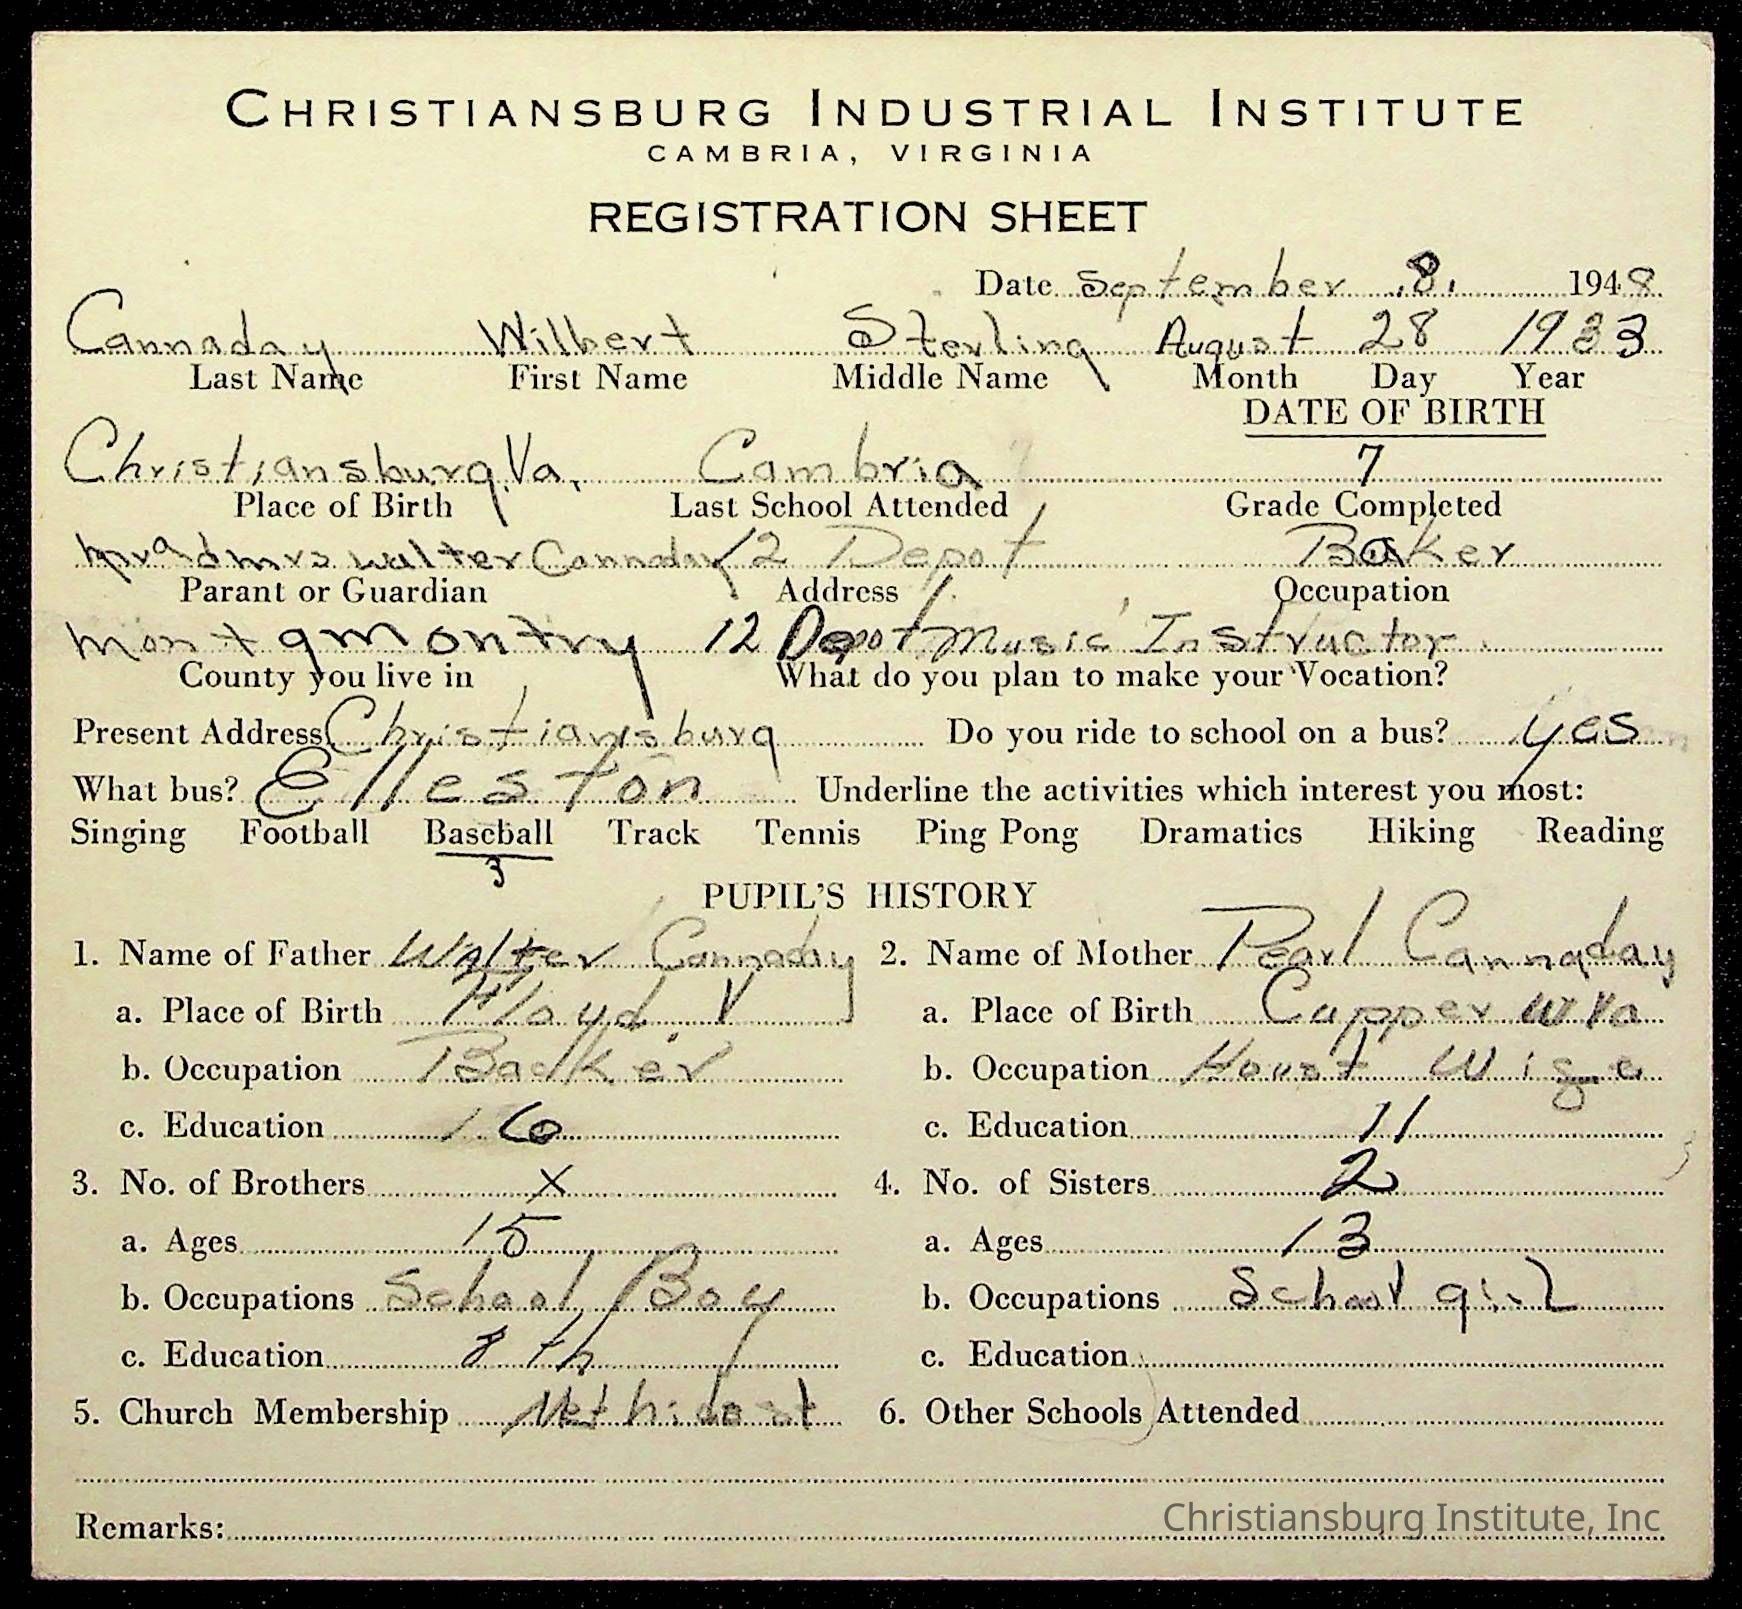 CHRISTIANSBURG INDUSTRIAL INSTITUTE
CAMBRIA, VIRGINIA
REGISTRATION SHEET
Date September 8, 1948
Cannaday Wilbert Sterling August 28 1933
Last Name First Name Middle Name Month Day Year
DATE OF BIRTH
Christiansburg, Va. Cambria 7
Place of Birth Last School Attended Grade Completed
Mr and mrs walter Cannaday 12 Depot Baker
Parant or Guardian Address Occupation
montgmontry 12 Depot Music Instructor
County you live in What do you plan to make your Vocation?
Present Address Christiansburg Do you ride to school on a bus? yes
What bus? Elleston Underline the activities which interest you most:
Singing Football Baseball Track Tennis Ping Pong Dramatics Hiking Reading
3
PUPIL'S HISTORY
1. Name of Father Walter Cannaday 2. Name of Mother Pearl Cannaday
a. Place of Birth Floyd V a. Place of Birth Capper W Va
b. Occupation Backer b. Occupation Houst Wige
c. Education 16 c. Education 11
3. No. of Brothers x 4. No. of Sisters 2
a. Ages 15 a. Ages 13
b. Occupations School Boy b. Occupations School girl
c. Education 8th c. Education
5. Church Membership Methidost 6. Other Schools Attended
Remarks:
Christiansburg Institute, Inc